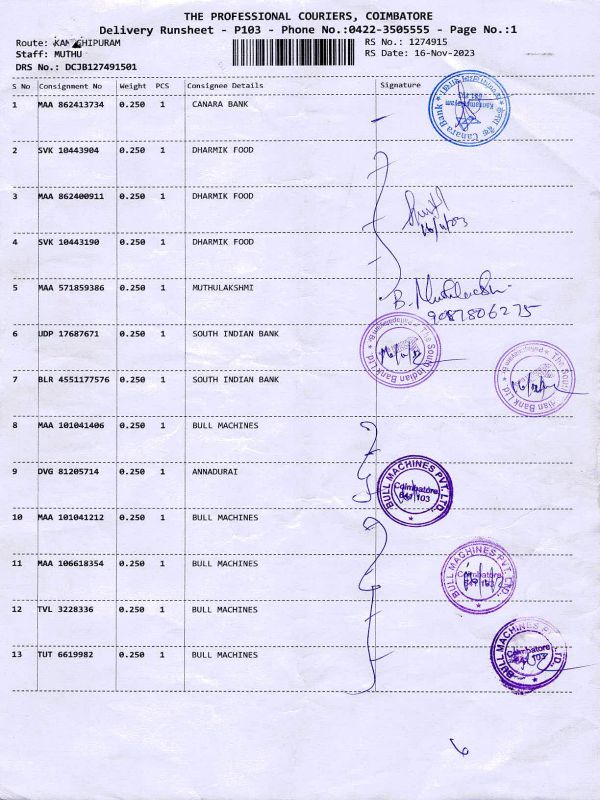 THE PROFESSIONAL COURIERS, COIMBATORE
Delivery Runsheet - P103 - Phone No.:0422-3505555 - Page No.:1
Route: KANCHIPURAM RS No.: 1274915
Staff: MUTHU RS Date: 16-Nov-2023
DRS No.: DCJB127491501
S No Consignment No Weight PCS Consignee Details Signature
1 MAA 862413734 0.250 1 CANARA BANK
Canara Bank
2 SVK 10443904 0.250 1 DHARMIK FOOD
3 MAA 862400911 0.250 1 DHARMIK FOOD
4 SVK 10443190 0.250 1 DHARMIK FOOD
5 MAA 571859386 0.250 1 MUTHULAKSHMI
B. Muthulakshmi
9087806275
6 UDP 17687671 0.250 1 SOUTH INDIAN BANK
The South Indian Bank Ltd.
7 BLR 4551177576 0.250 1 SOUTH INDIAN BANK
The South Indian Bank Ltd.
8 MAA 101041406 0.250 1 BULL MACHINES
9 DVG 81205714 0.250 1 ANNADURAI
BULL MACHINES PVT. LTD.
Coimbatore
641 103
10 MAA 101041212 0.250 1 BULL MACHINES
11 MAA 106618354 0.250 1 BULL MACHINES
BULL MACHINES PVT. LTD.
Coimbatore
641 103
12 TVL 3228336 0.250 1 BULL MACHINES
13 TUT 6619982 0.250 1 BULL MACHINES
BULL MACHINES PVT. LTD.
Coimbatore
641 103
6